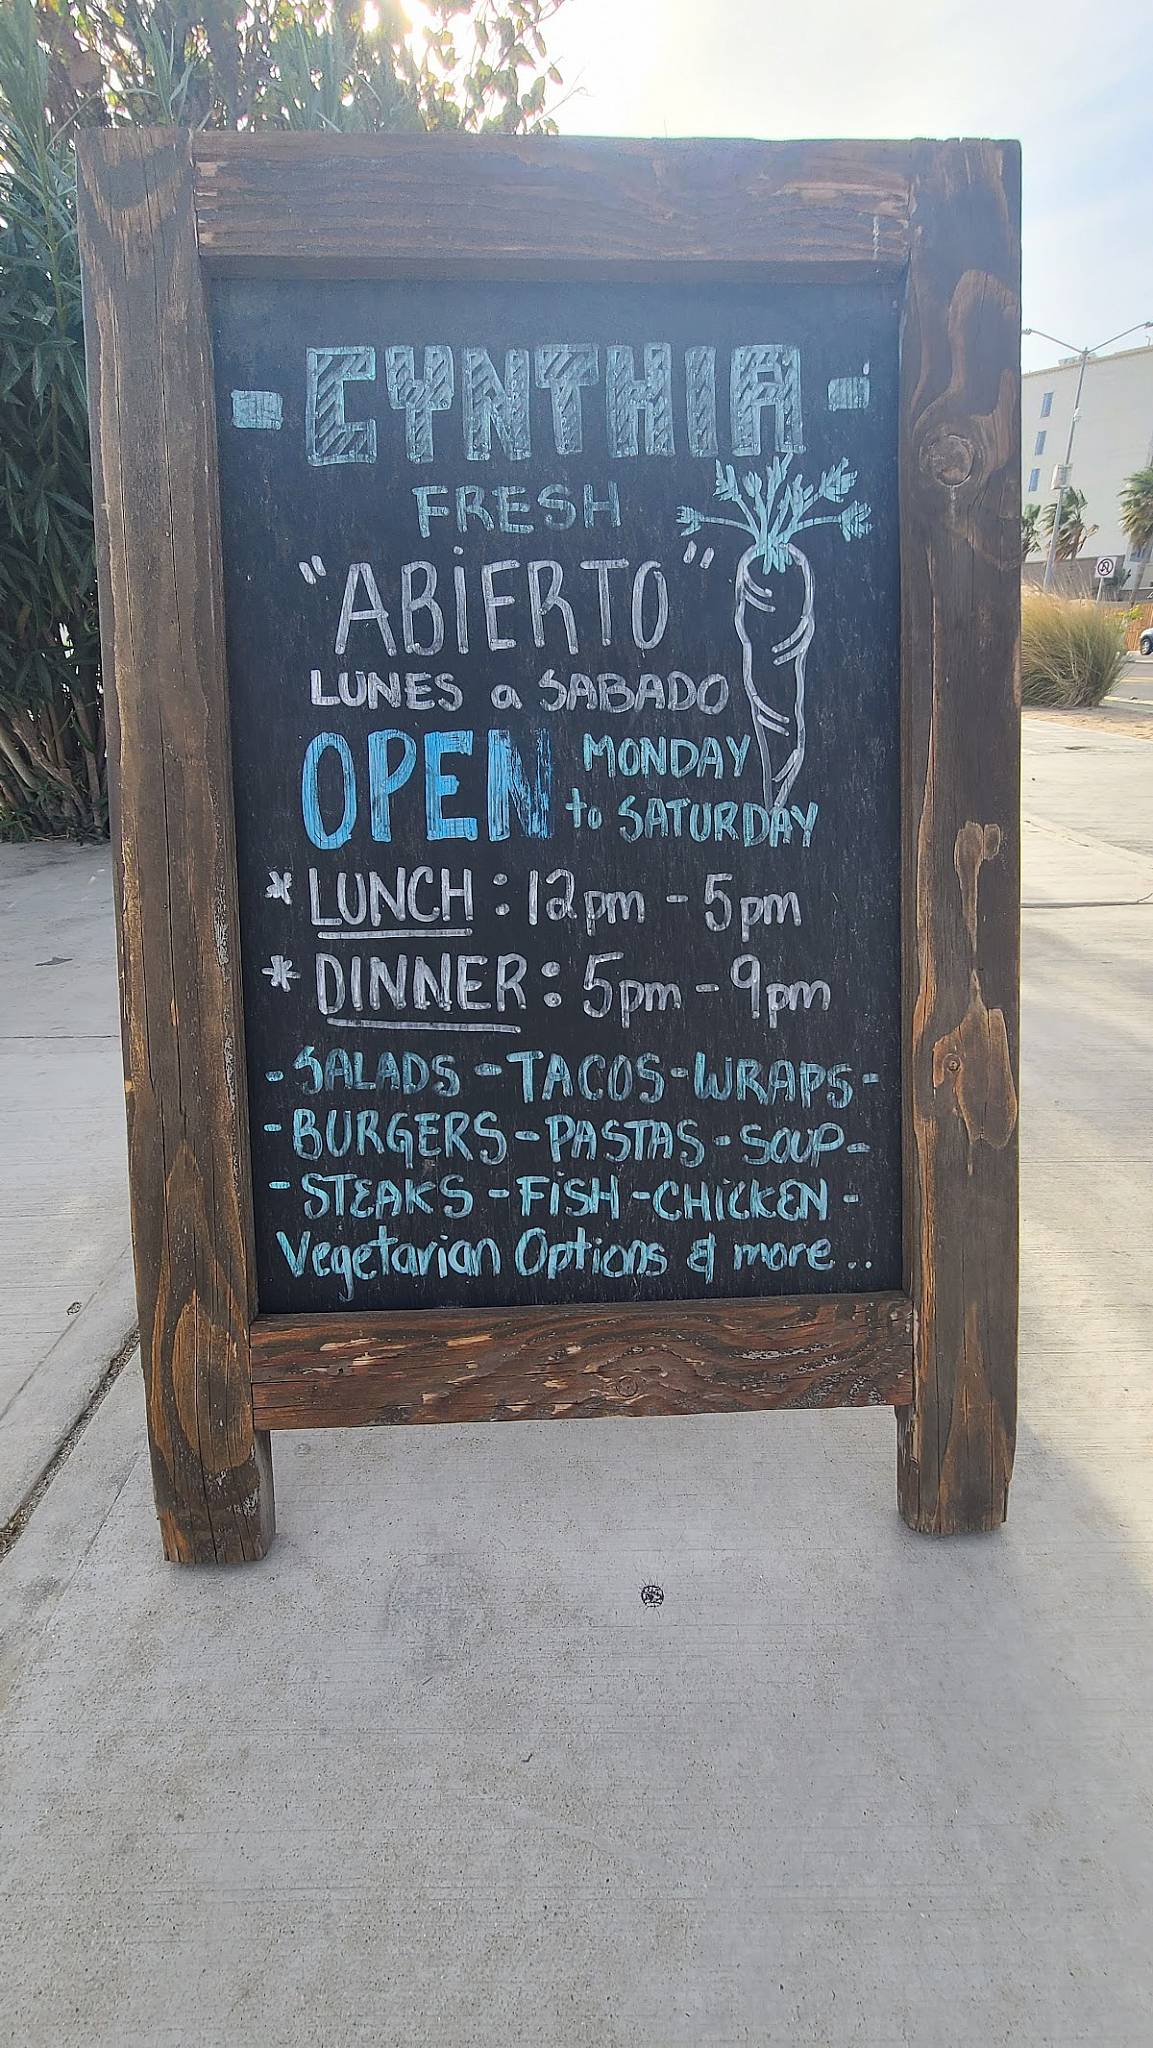 - CYNTHIA -
FRESH
"ABiERTO"
LUNES a SABADO
OPEN MONDAY
to SATURDAY
* LUNCH : 12pm - 5pm
* DINNER : 5pm - 9pm
- SALADS - TACOS - WRAPS -
- BURGERS - PASTAS - SOUP -
- STEAKS - FiSH - CHiCKEN -
Vegetarian Options & more ..